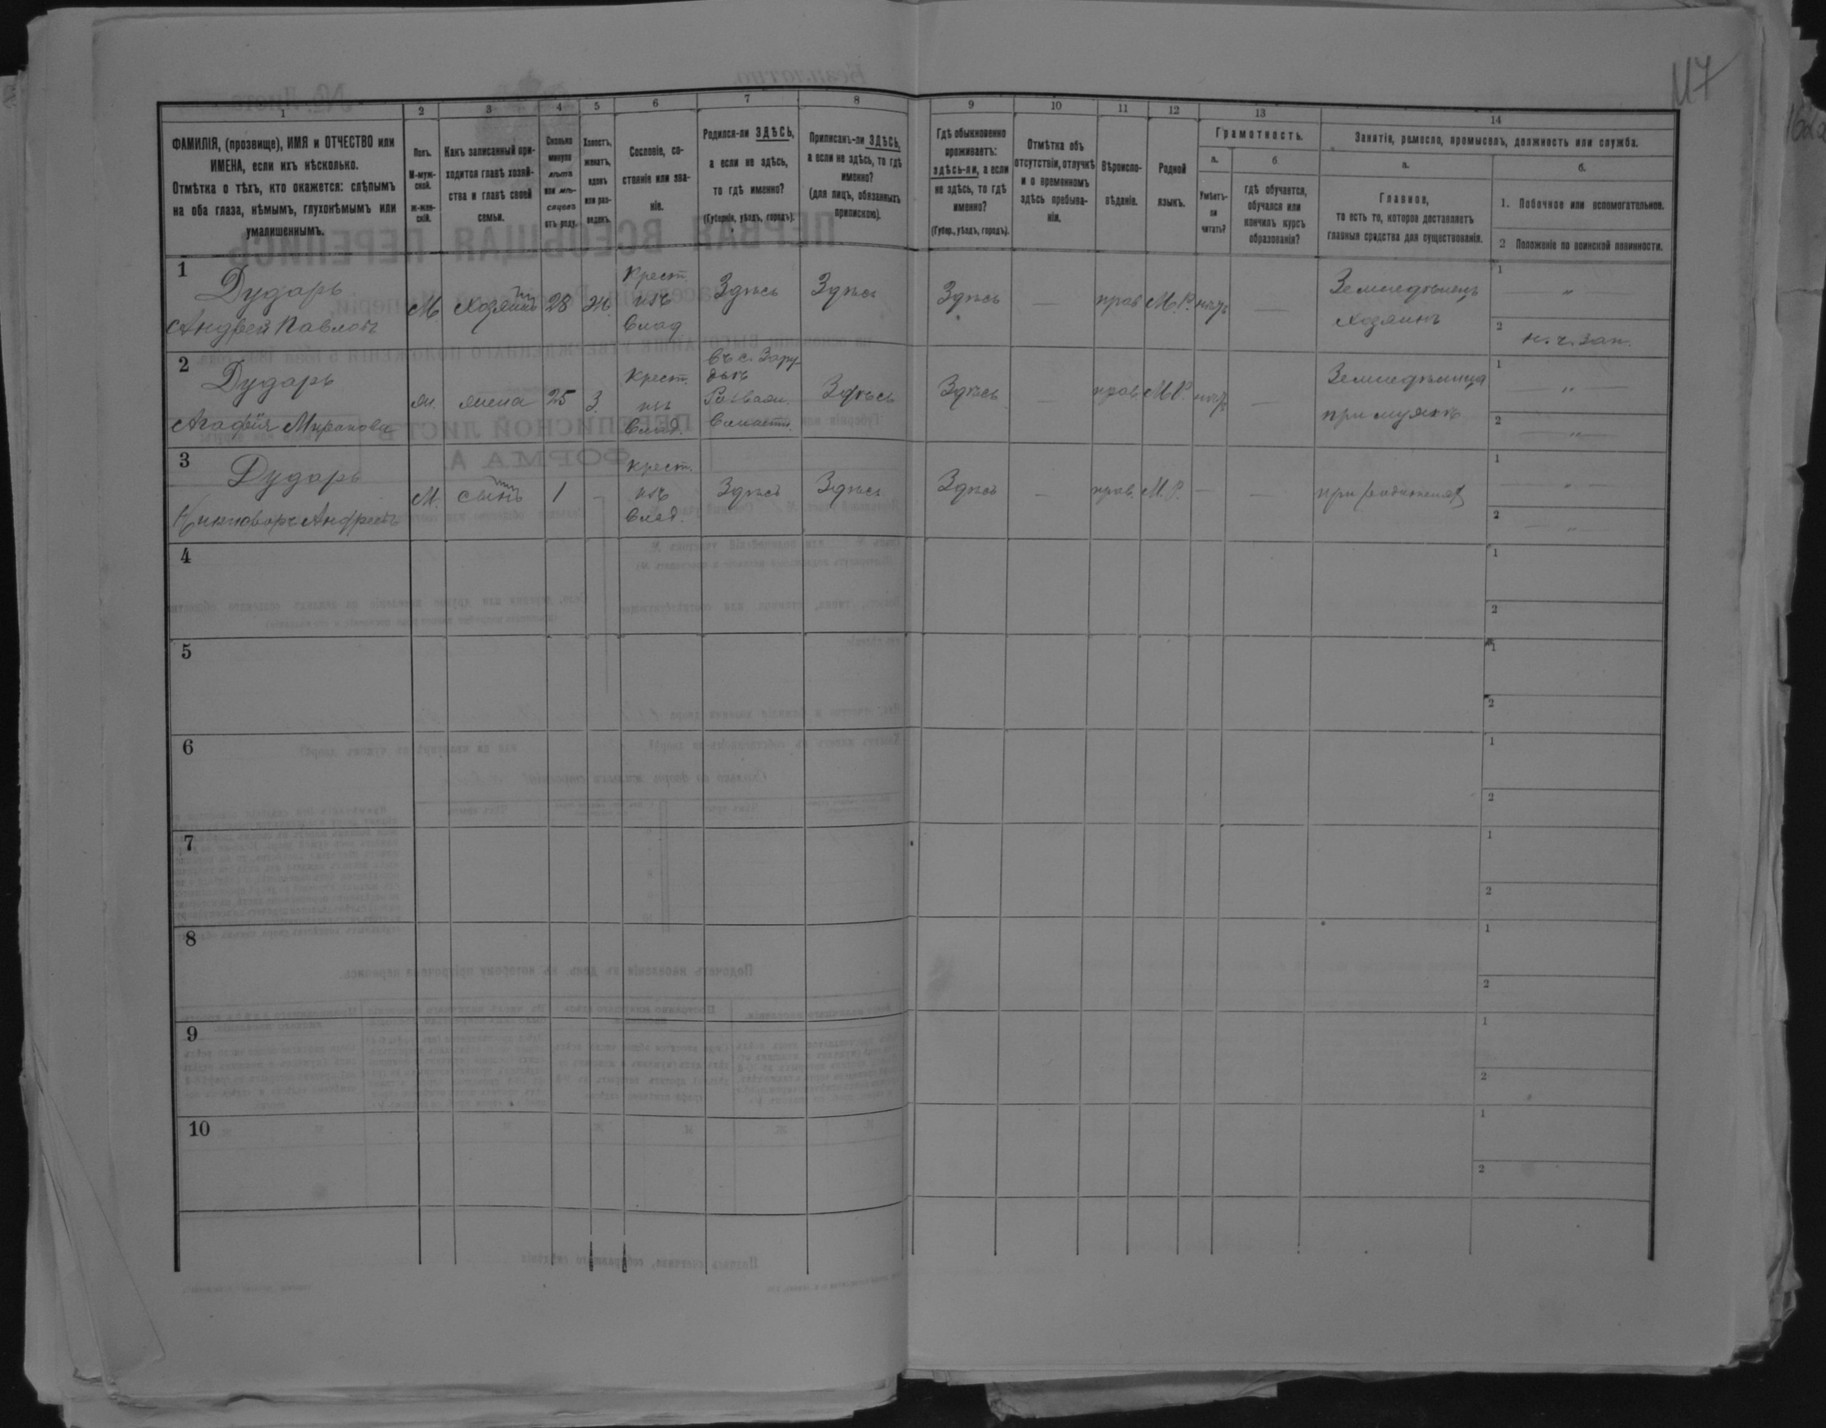 117
1
2
3
4
5
6
7
8
9
10
11
12
13
14
ФАМИЛІЯ, (прозвище), ИМЯ и ОТЧЕСТВО или
ИМЕНА, если ихъ нѣсколько.
Отмѣтка о тѣхъ, кто окажется: слѣпымъ
на оба глаза, нѣмымъ, глухонѣмымъ или
умалишеннымъ.
Полъ.
М-муж-
ской.
ж-жен-
скій.
Какъ записанный при-
ходится главѣ хозяй-
ства и главѣ своей
семьи.
Сколько
минуло
лѣтъ
или мѣ-
сяцевъ
отъ роду.
Холостъ,
женатъ,
вдовъ
или раз-
веденъ.
Сословіе, со-
стояніе или зва-
ніе.
Родился-ли ЗДѢСЬ,
а если не здѣсь,
то гдѣ именно?
(Губернія, уѣздъ, городъ).
Приписанъ-ли ЗДѢСЬ,
а если не здѣсь, то гдѣ
именно?
(для лицъ, обязанныхъ
припискою).
Гдѣ обыкновенно
проживаетъ:
здѣсь-ли, а если
не здѣсь, то гдѣ
именно?
(Губер., уѣздъ, городъ).
Отмѣтка объ
отсутствіи, отлучкѣ
и о временномъ
здѣсь пребыва-
ніи.
Вѣроиспо-
вѣданіе.
Родной
языкъ.
Грамотность.
а.
Умѣетъ-
ли
читать?
б.
гдѣ обучается,
обучался или
кончилъ курсъ
образованія?
Занятіе, ремесло, промыселъ, должность или служба.
а.
Главное,
то есть то, которое доставляетъ
главныя средства для существованія.
б.
1. Побочное или вспомогательное.
2 Положеніе по воинской повинности.
1
Дударь
Андрей Павловъ
М.
Хозяинъ
28
Ж.
Крест.
изъ
влад.
Здѣсь
Здѣсь
Здѣсь
—
прав.
М.Р.
нѣтъ
—
Земледѣлецъ
Хозяинъ
1
— „ —
2
н. ч. зап.
2
Дударь
Агафія Миронова
ж.
жена
25
З.
Крест.
изъ
влад.
въ с. Зару
волости.
Здѣсь
Здѣсь
—
прав.
М.Р.
нѣтъ
—
Земледѣлица
при мужѣ
1
— „ —
2
— „ —
3
Дударь
М.
сынъ
1
-
Крест.
изъ
влад.
Здѣсь
Здѣсь
Здѣсь
—
прав.
М.Р.
—
—
при родителяхъ
1
— „ —
2
— „ —
4
1
2
5
1
2
6
1
2
7
1
2
8
1
2
9
1
2
10
1
2